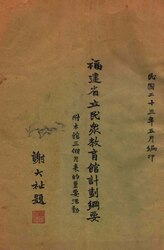 民國二十三年五月編印
福建省立民衆教育館計劃綱要
附本館三個月來的重要活動
謝大祉題